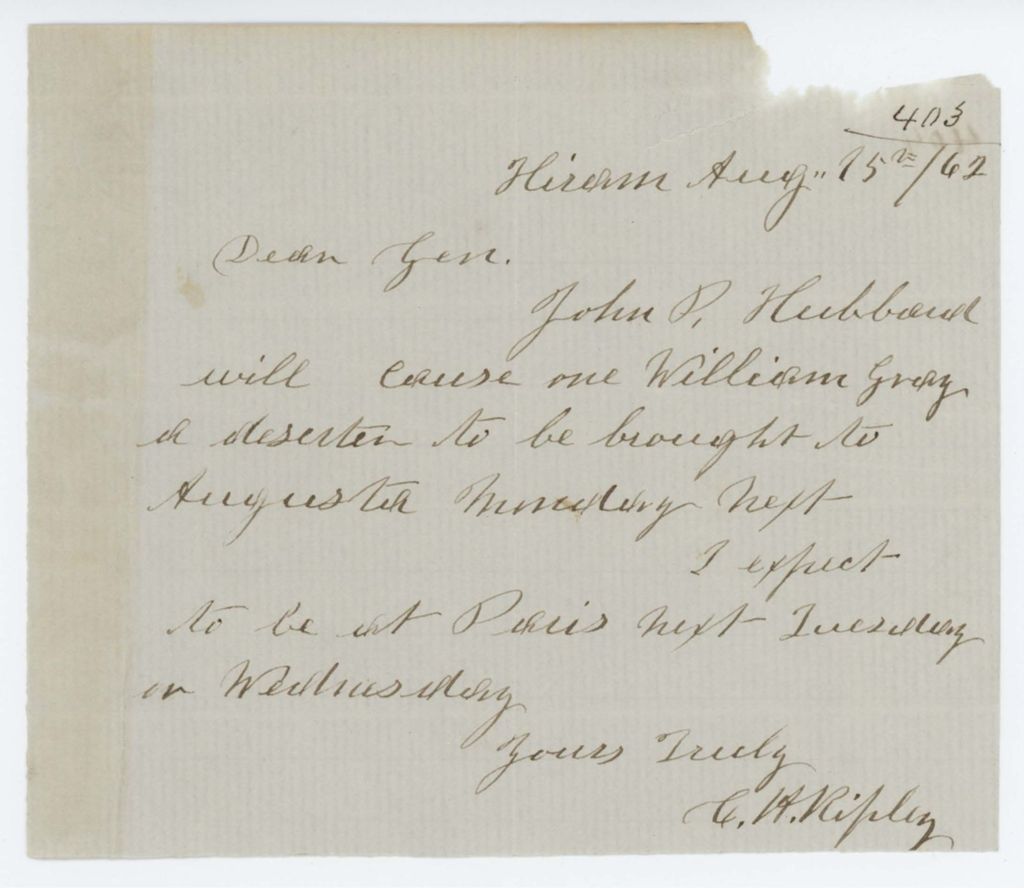 403
Hiram Aug. 15th/62
Dear Gen.
John P. Hubbard
will cause one William Gray
a deserter to be brought to
Augusta Monday next
I expect
to be at Paris next Tuesday
or Wednesday
Yours Truly
C. H. Ripley